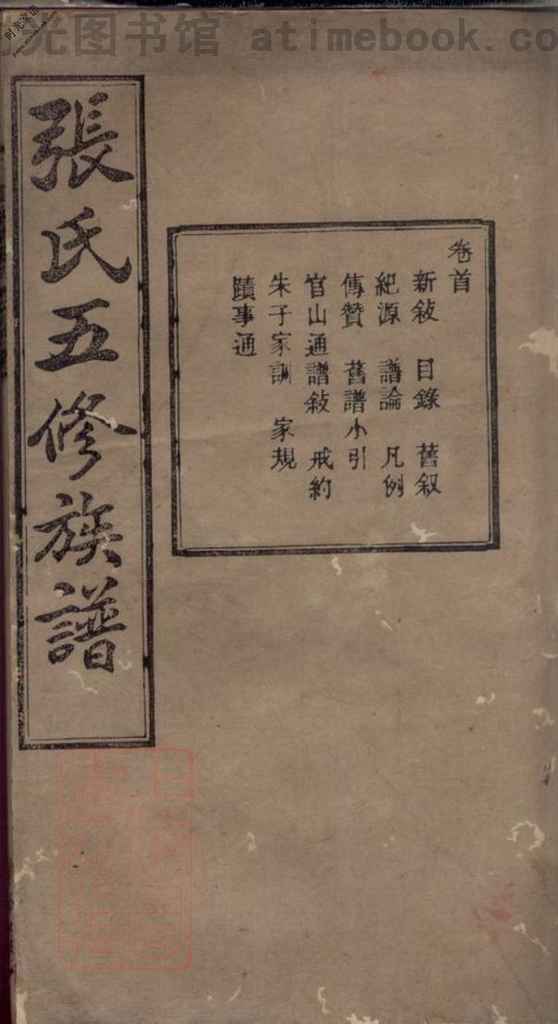 时光图书馆 atimebook.co
張氏五修族譜
卷首
新敍 目錄 舊叙
紀源 譜論 凡例
傳贊 舊譜小引
官山通譜敍 戒約
朱子家訓 家規
蹟事通